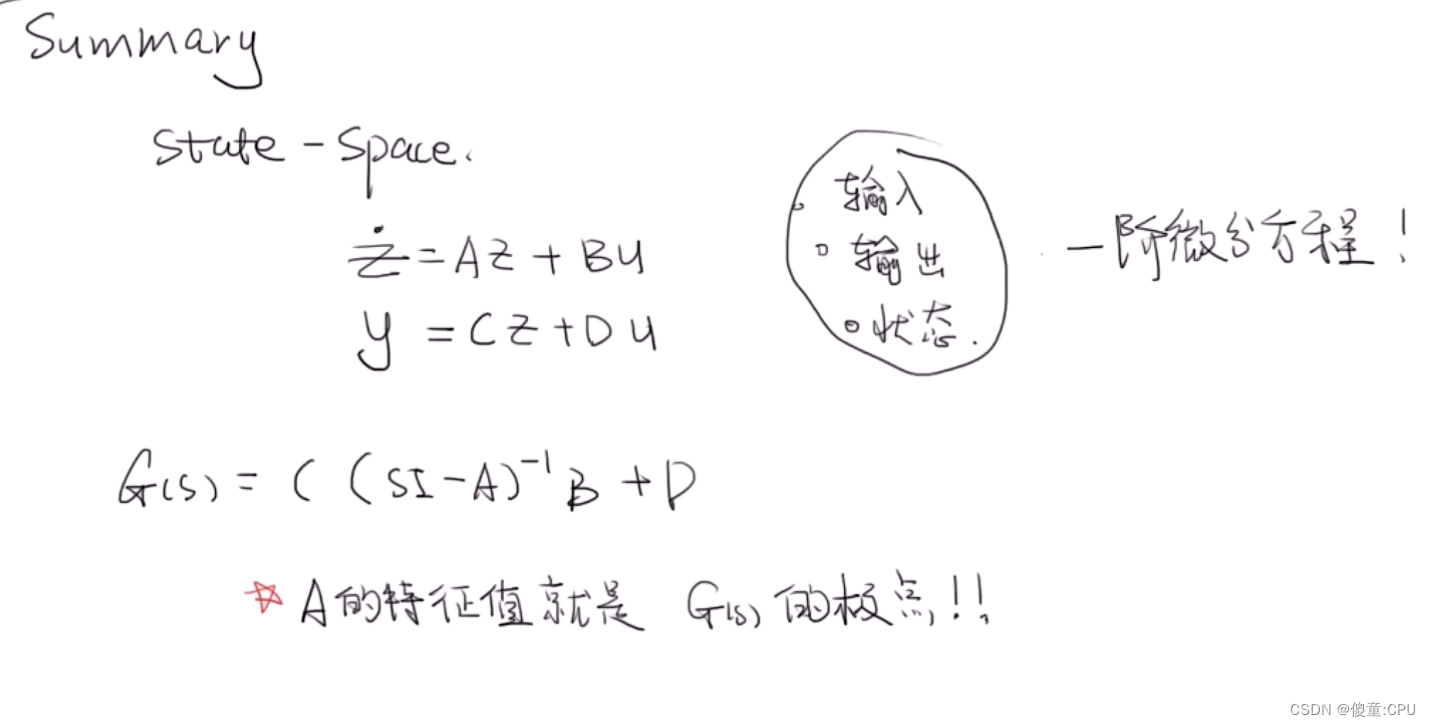 Summary
State-Space.
ż = Az + Bu
y = Cz + Du
输入
输出
状态.
一阶微分方程!
G(s) = C (sI-A)⁻¹ B + D
☆ A的特征值就是 G(s) 的极点!!
CSDN @傻童:CPU